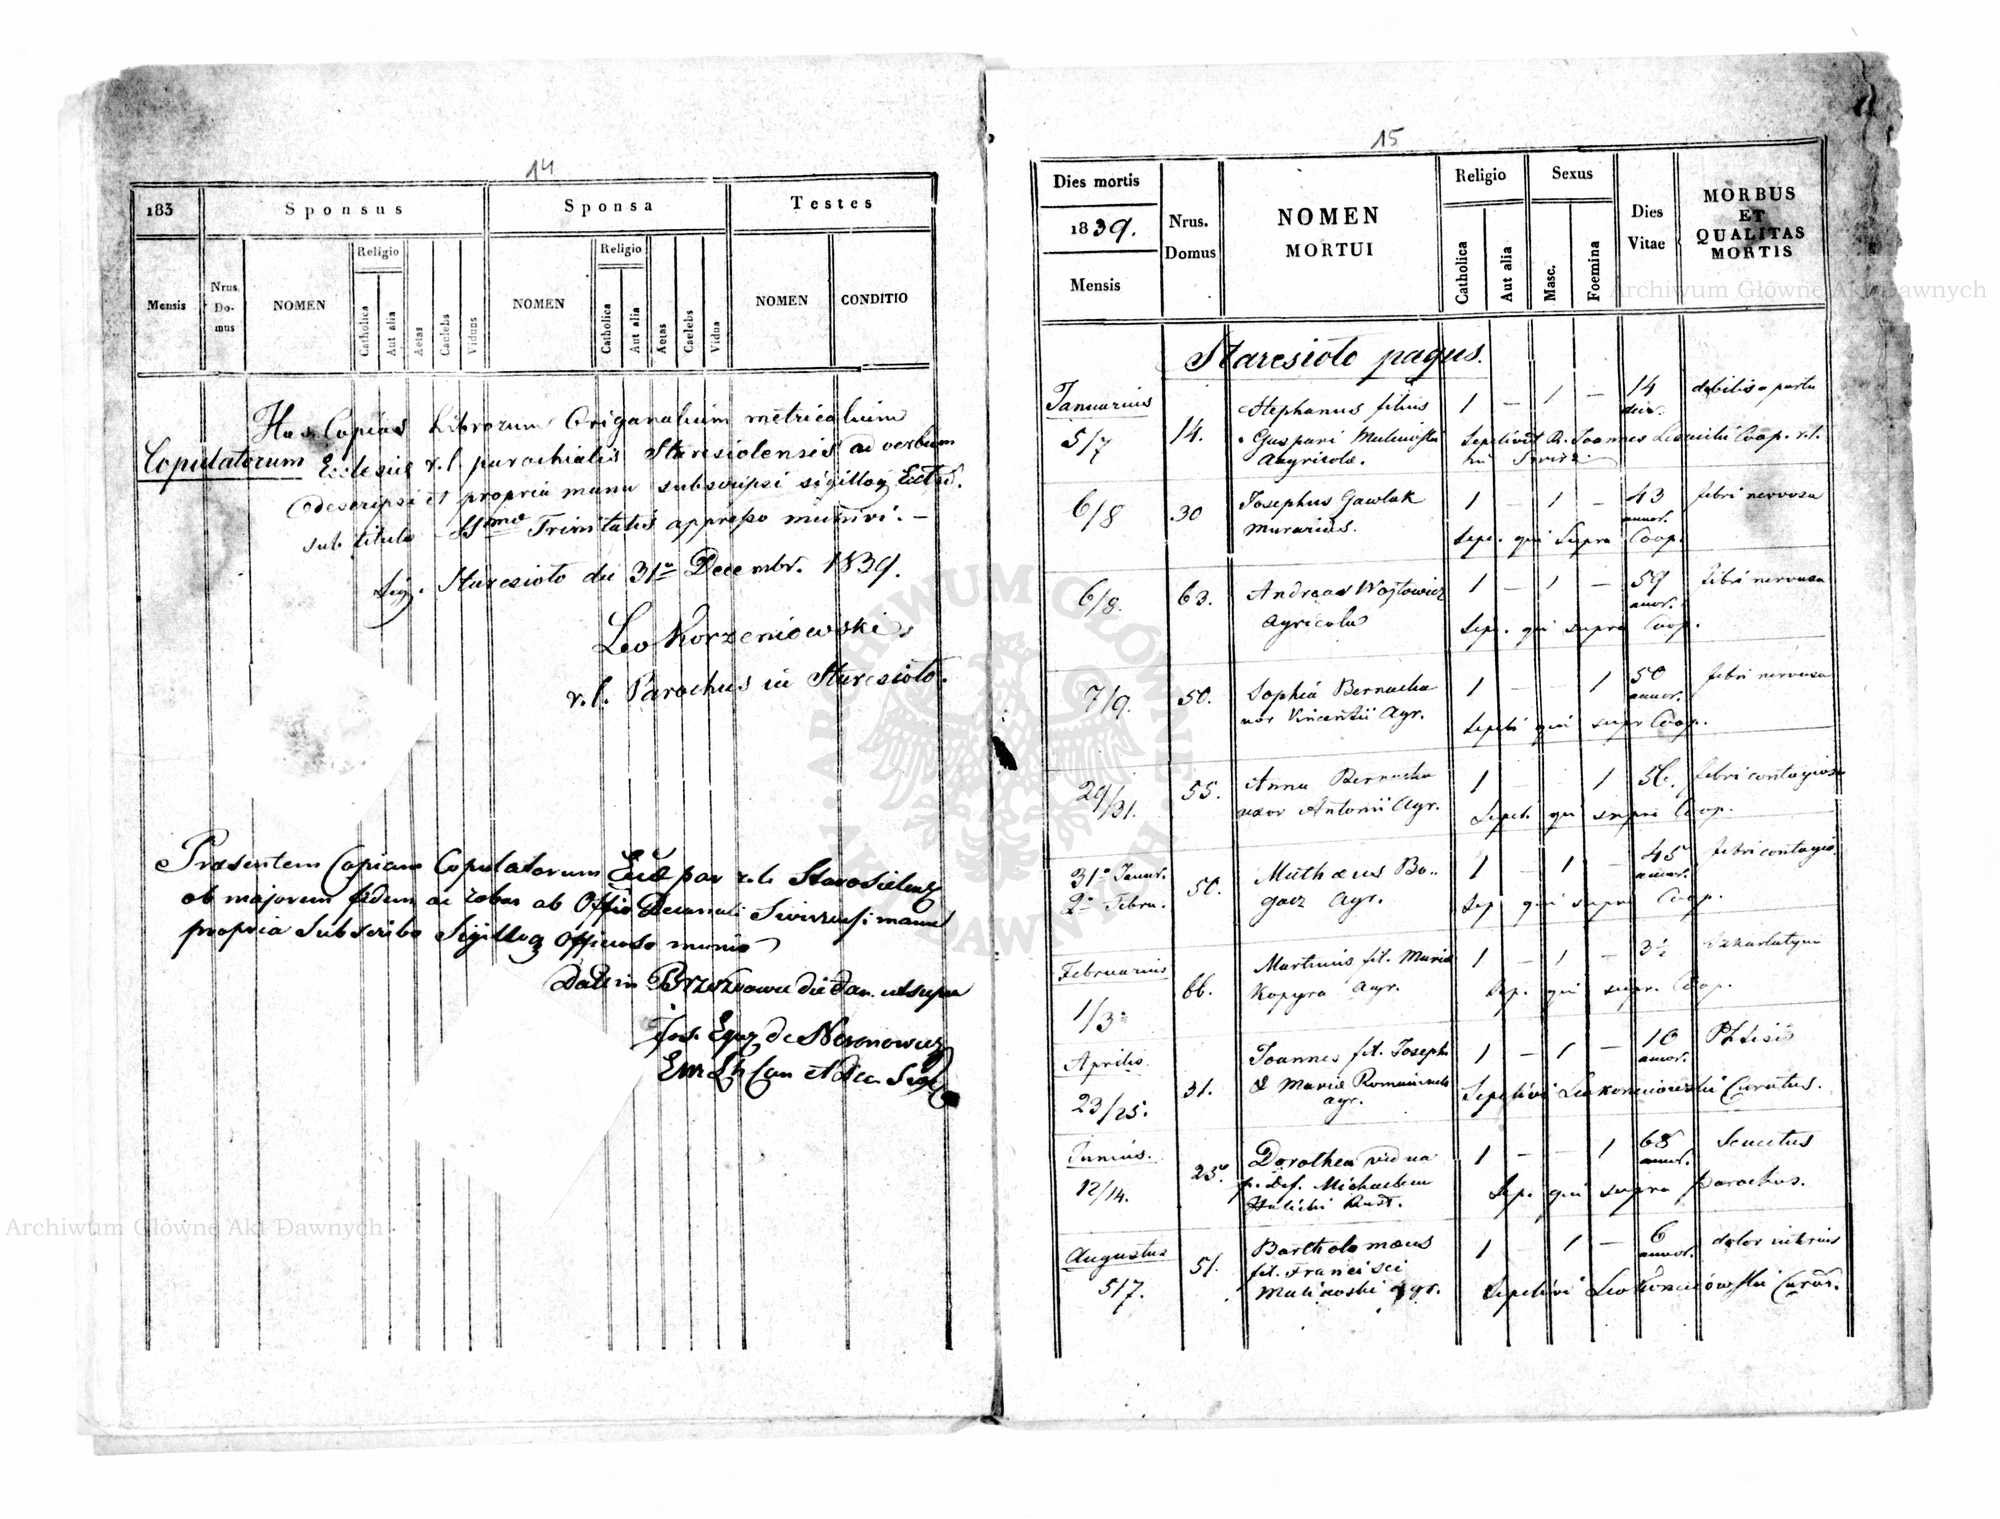 14
183
Sponsus
Sponsa
Testes
Mensis
Nrus. Domus
NOMEN
Religio
Catholica
Aut alia
Aetas
Caelebs
Viduus
NOMEN
Religio
Catholica
Aut alia
Aetas
Caelebs
Vidua
NOMEN
CONDITIO
Copias Librorum Origanalium metricalium
Copulatorum Eclesiae r.l. parochialis Staresiolensis ad verbum
descripsi et propria manu subscripsi sigilloq Eccl.
sub titulo SSmae Trinitatis appresso munivi. –
Sig. Staresioło die 31a Decembr. 1839.
Leo Korzeniowski
r.l. Parochus in Staresioło.
Praesentem Copiam Copulatorum par r.l.
ob majorem fidem ac robur ab Offio Decanali manu
propria Subscribo Sigilloq Officioso munio
Datum die ut supra
Jos. de
Can et Dec.
15
Dies mortis
1839.
Mensis
Nrus. Domus
NOMEN
MORTUI
Religio
Catholica
Aut alia
Sexus
Masc.
Foemina
Dies Vitae
MORBUS
ET
QUALITAS
MORTIS
Staresioło pagus.
Januarius
5/7 14. Stephanus filius 1 – 1 – 14 dier. debilis a partu
Gaspari Malinowski Sepelivit R. Joannes Coop. r.l.
Agricola.
6/8 30 Josephus Gawlak 1 – 1 – 43 annor. febri nervosa
murarius. Sepe. qui Supra Coop.
6/8. 63. Andreas Wojtowicz 1 – 1 – 59 annor. febri nervosa
agricola Sepe. qui supra Coop.
7/9. 50. Sophia Bernacka 1 – – 1 50 annor. febri nervosa
uxor Vincentii Agr. Sepeli qui supr Coop.
29/31. 55. Anna Bernacka 1 1 56. febri contagiosa
uxor Antonii Agr. Sepeli. qui supra Coop.
31a Januar. 50. Mathaeus Bo- 1 – 1 – 45 annor. febri contagio.
2a Febru. gacz Agr. Sep. qui supra Coop.
Februarius
1/3a 66. Martinus fil. Maria 1 – 1 – 3½
Kopyra Agr. Sep. qui supr. Coop.
Aprilis.
23/25. 31. Joannes fil. Josephi 1 – 1 – 10 annor. Phtisis
& Maria
agr. Sepelivi Leo Korzeniowski Curatus.
Junius.
12/14. 25. Dorothea vidua 1 – – 1 68 annor. Senectus
p. def. Michaelem Sep. qui supra parochus.
Halicki
Augustus
5/7. 51. Bartholomaeus 1 – 1 – 6 annor. dolor internus
fil. Francisci
Malinoski agr. Sepelivi Leo Korzeniowski Curat.
Archiwum Główne Akt Dawnych
Archiwum Główne Akt Dawnych
ARCHIWUM GŁÓWNE AKT DAWNYCH